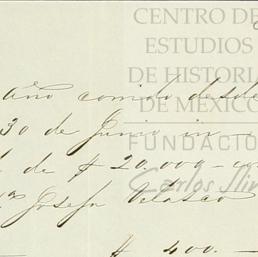 CENTRO DE
ESTUDIOS
DE HISTORIA
DE MÉXICO
FUNDACIÓ
Carlos Sli
año corrido desde
30 de Junio in
de $ 20,000 - co
Josefa Velasco
$ 400. -